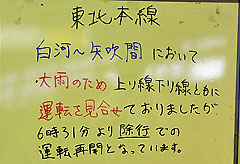 東北本線
白河～矢吹間 において
大雨のため 上り線下り線ともに
運転を見合せておりましたが
6時31分より徐行での
運転再開となっています。